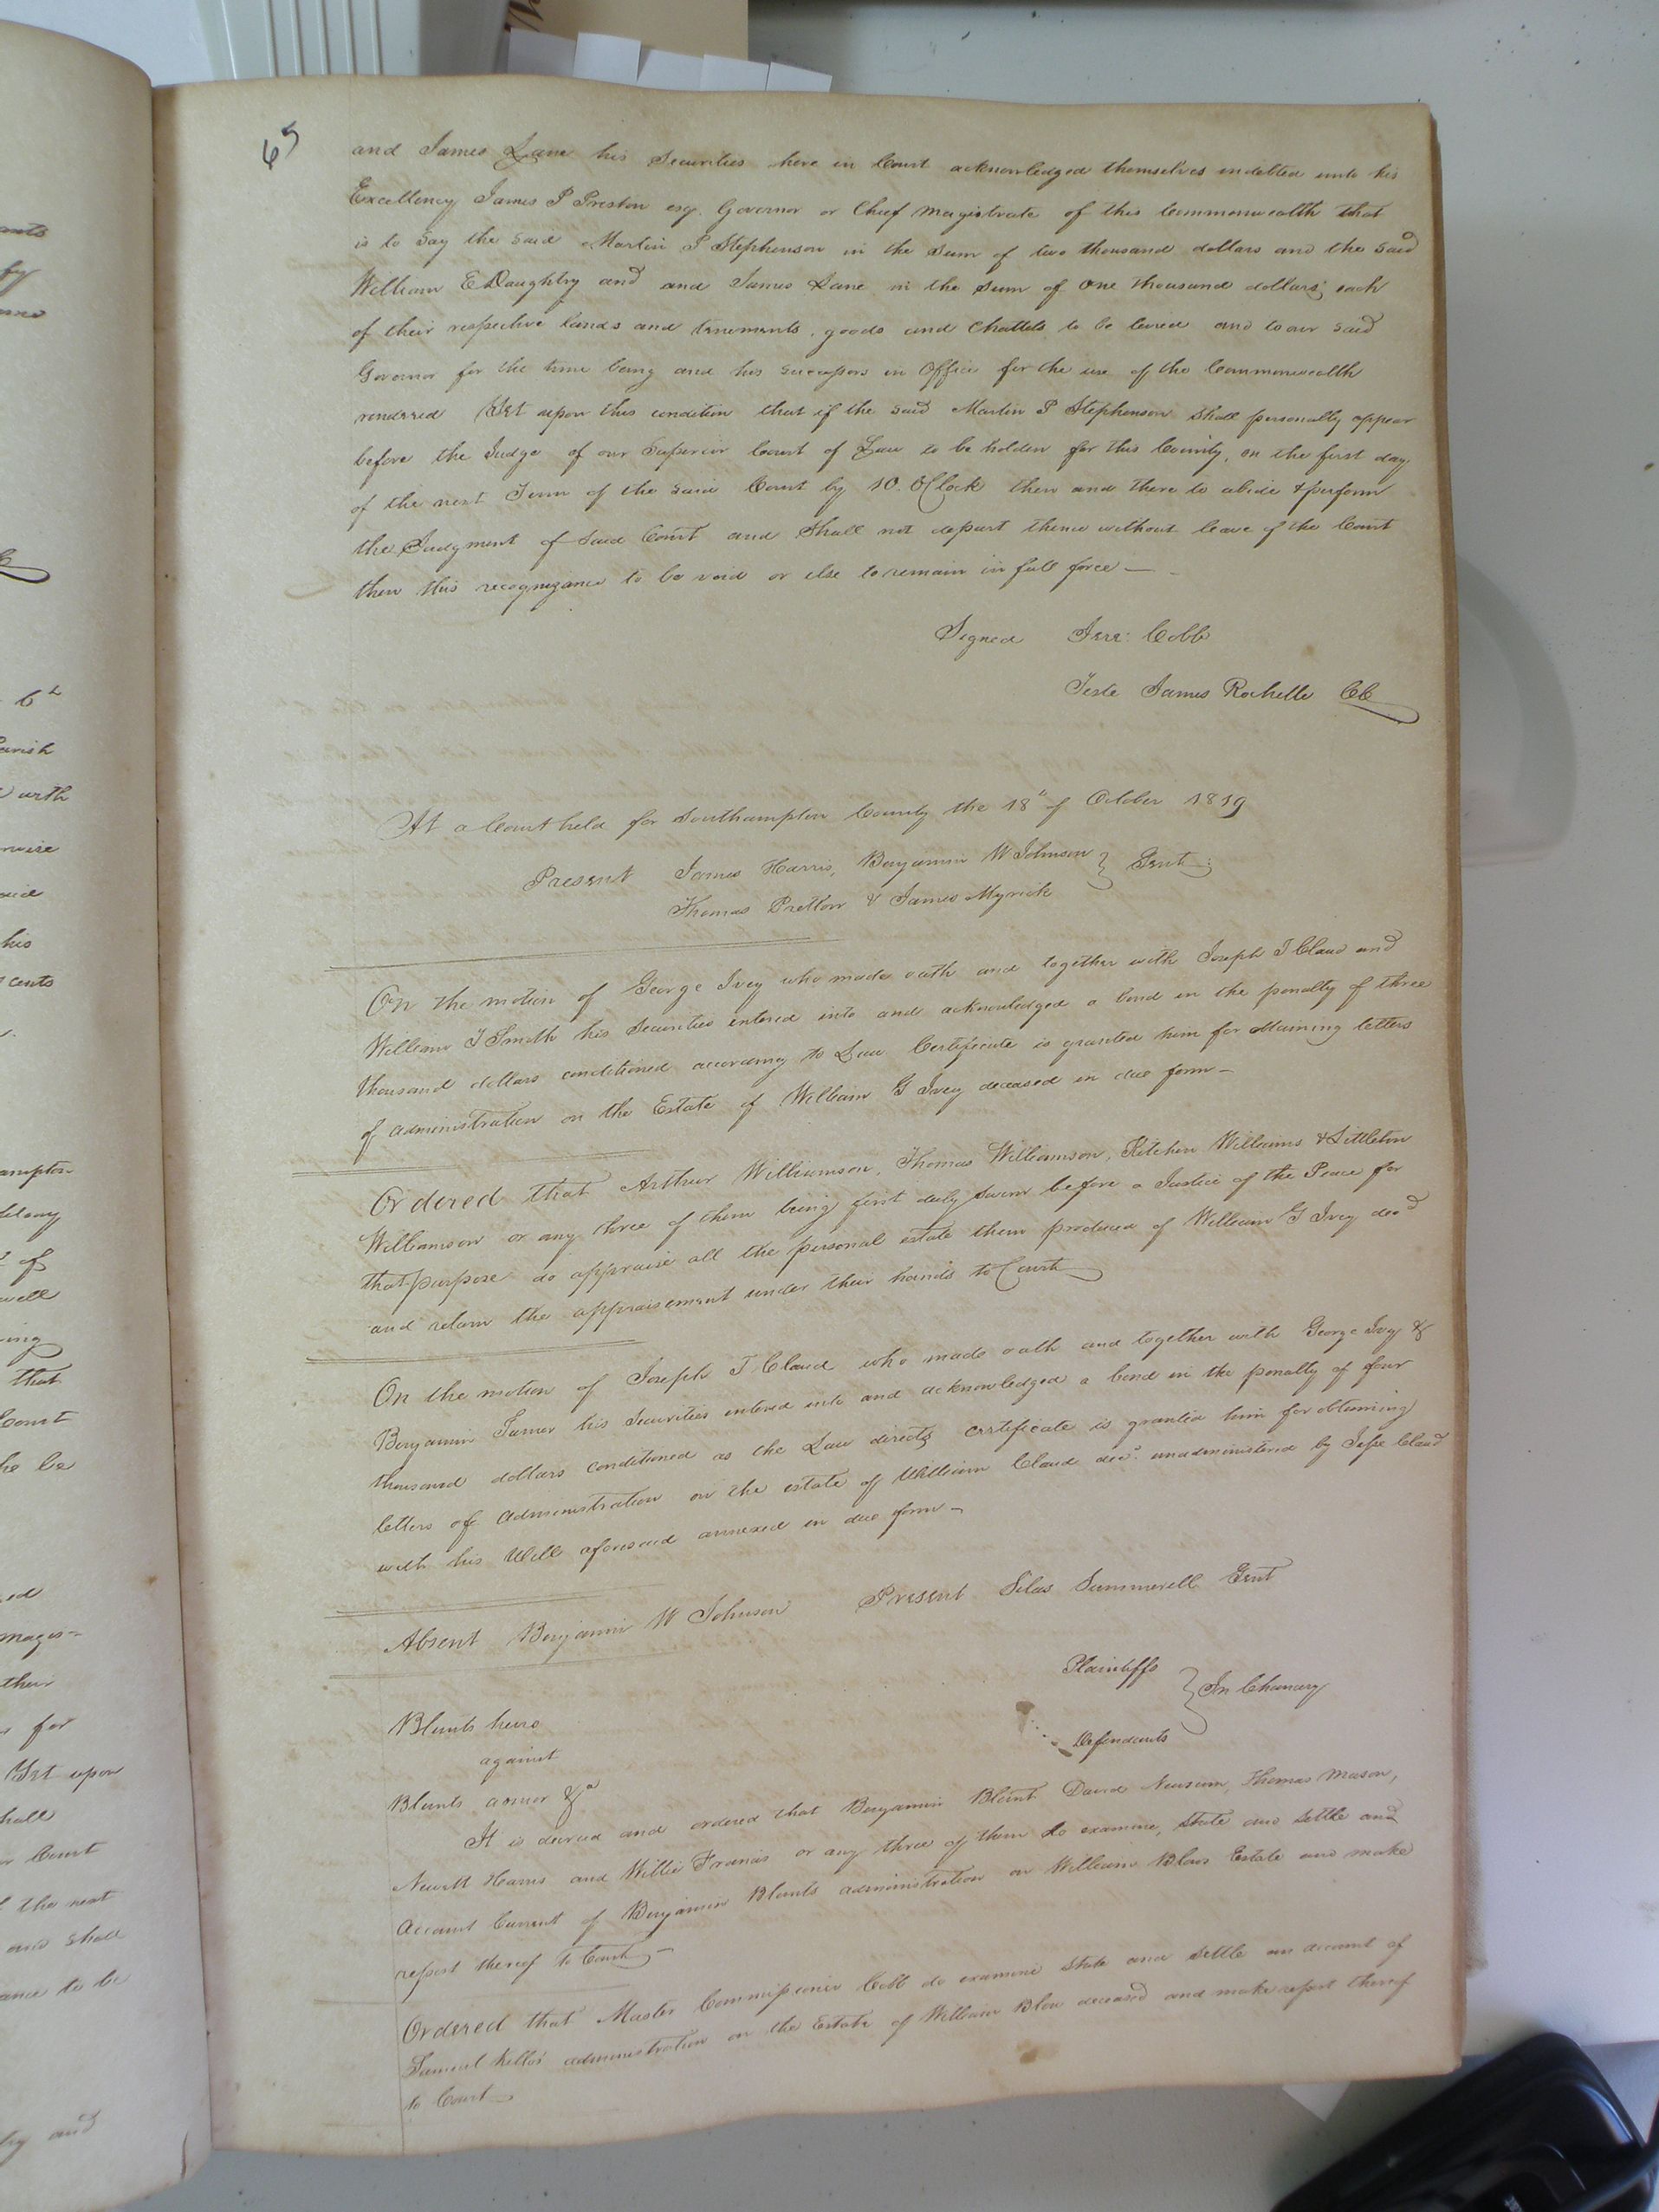 65
and James Lane his Securities here in Court acknowledged themselves indebted unto his
Excellency James P Preston esq. Governor or Chief Magistrate of this Commonwealth that
is to say the said Martin P Stephenson in the sum of two thousand dollars and the said
William E Daughtry and and James Lane in the sum of one thousand dollars each
of their respective lands and tenements, goods and Chattels to be levied and to our said
Governor for the time being and his successors in Office for the use of the Commonwealth
rendered Yet upon this condition that if the said Martin P Stephenson shall personally appear
before the Judge of our Superior Court of Law to be holden for this County, on the first day
of the next Term of the said Court by 10. OClock then and there to abide & perform
the Judgment of said Court and Shall not depart thence without leave of the Court
then this recognizance to be void or else to remain in full force —
Signed Jere: Cobb
Teste James Rochelle CC
At a Court held for Southampton County the 18th of October 1819
Present James Harris, Benjamin W Johnson } Gent:
Thomas Pretlow & James Myrick
On the motion of George Ivey who made oath and together with Joseph T Claud and
William T Smith his Securities entered into and acknowledged a bond in the penalty of three
thousand dollars conditioned according to Law Certificate is granted him for obtaining letters
of administration on the Estate of William G Ivey deceased in due form —
Ordered that Arthur Williamson, Thomas Williamson, Kitchen Williams & Littleton
Williamson or any three of them being first duly sworn before a Justice of the Peace for
that purpose do appraise all the personal estate them produced of William G Ivey decd
and return the appraisement under their hands to Court
On the motion of Joseph T Claud who made oath and together with George Ivey &
Benjamin Turner his Securities entered into and acknowledged a bond in the penalty of four
thousand dollars conditioned as the Law directs certificate is granted him for obtaining
letters of administration on the estate of William Claud decd. unadministered by Jesse Claud
with his Will aforesaid annexed in due form —
Absent Benjamin W Johnson Present Silas Summerell Gent
Blunts heirs Plaintiffs
against } In Chancery
Blunts admor &a Defendants
It is decreed and ordered that Benjamin Blunt David Newsum, Thomas Mason,
Newitt Harris and Willie Francis or any three of them do examine, state and settle and
Account Current of Benjamin Blunts administration on William Blows Estate and make
report thereof to Court —
Ordered that Master Commissioner Cobb do examine state and settle an account of
Samuel Kello's administration on the Estate of William Blow deceased and make report thereof
to Court —